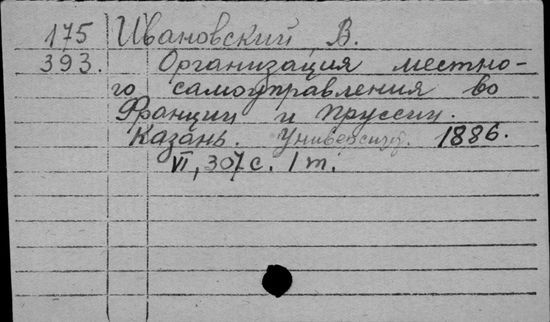 175 Ивановский В.
393. Организация местно-
го самоуправления во
Франции и Пруссии.
Казань. Университ. 1886.
VI, 307 с. 1 т.